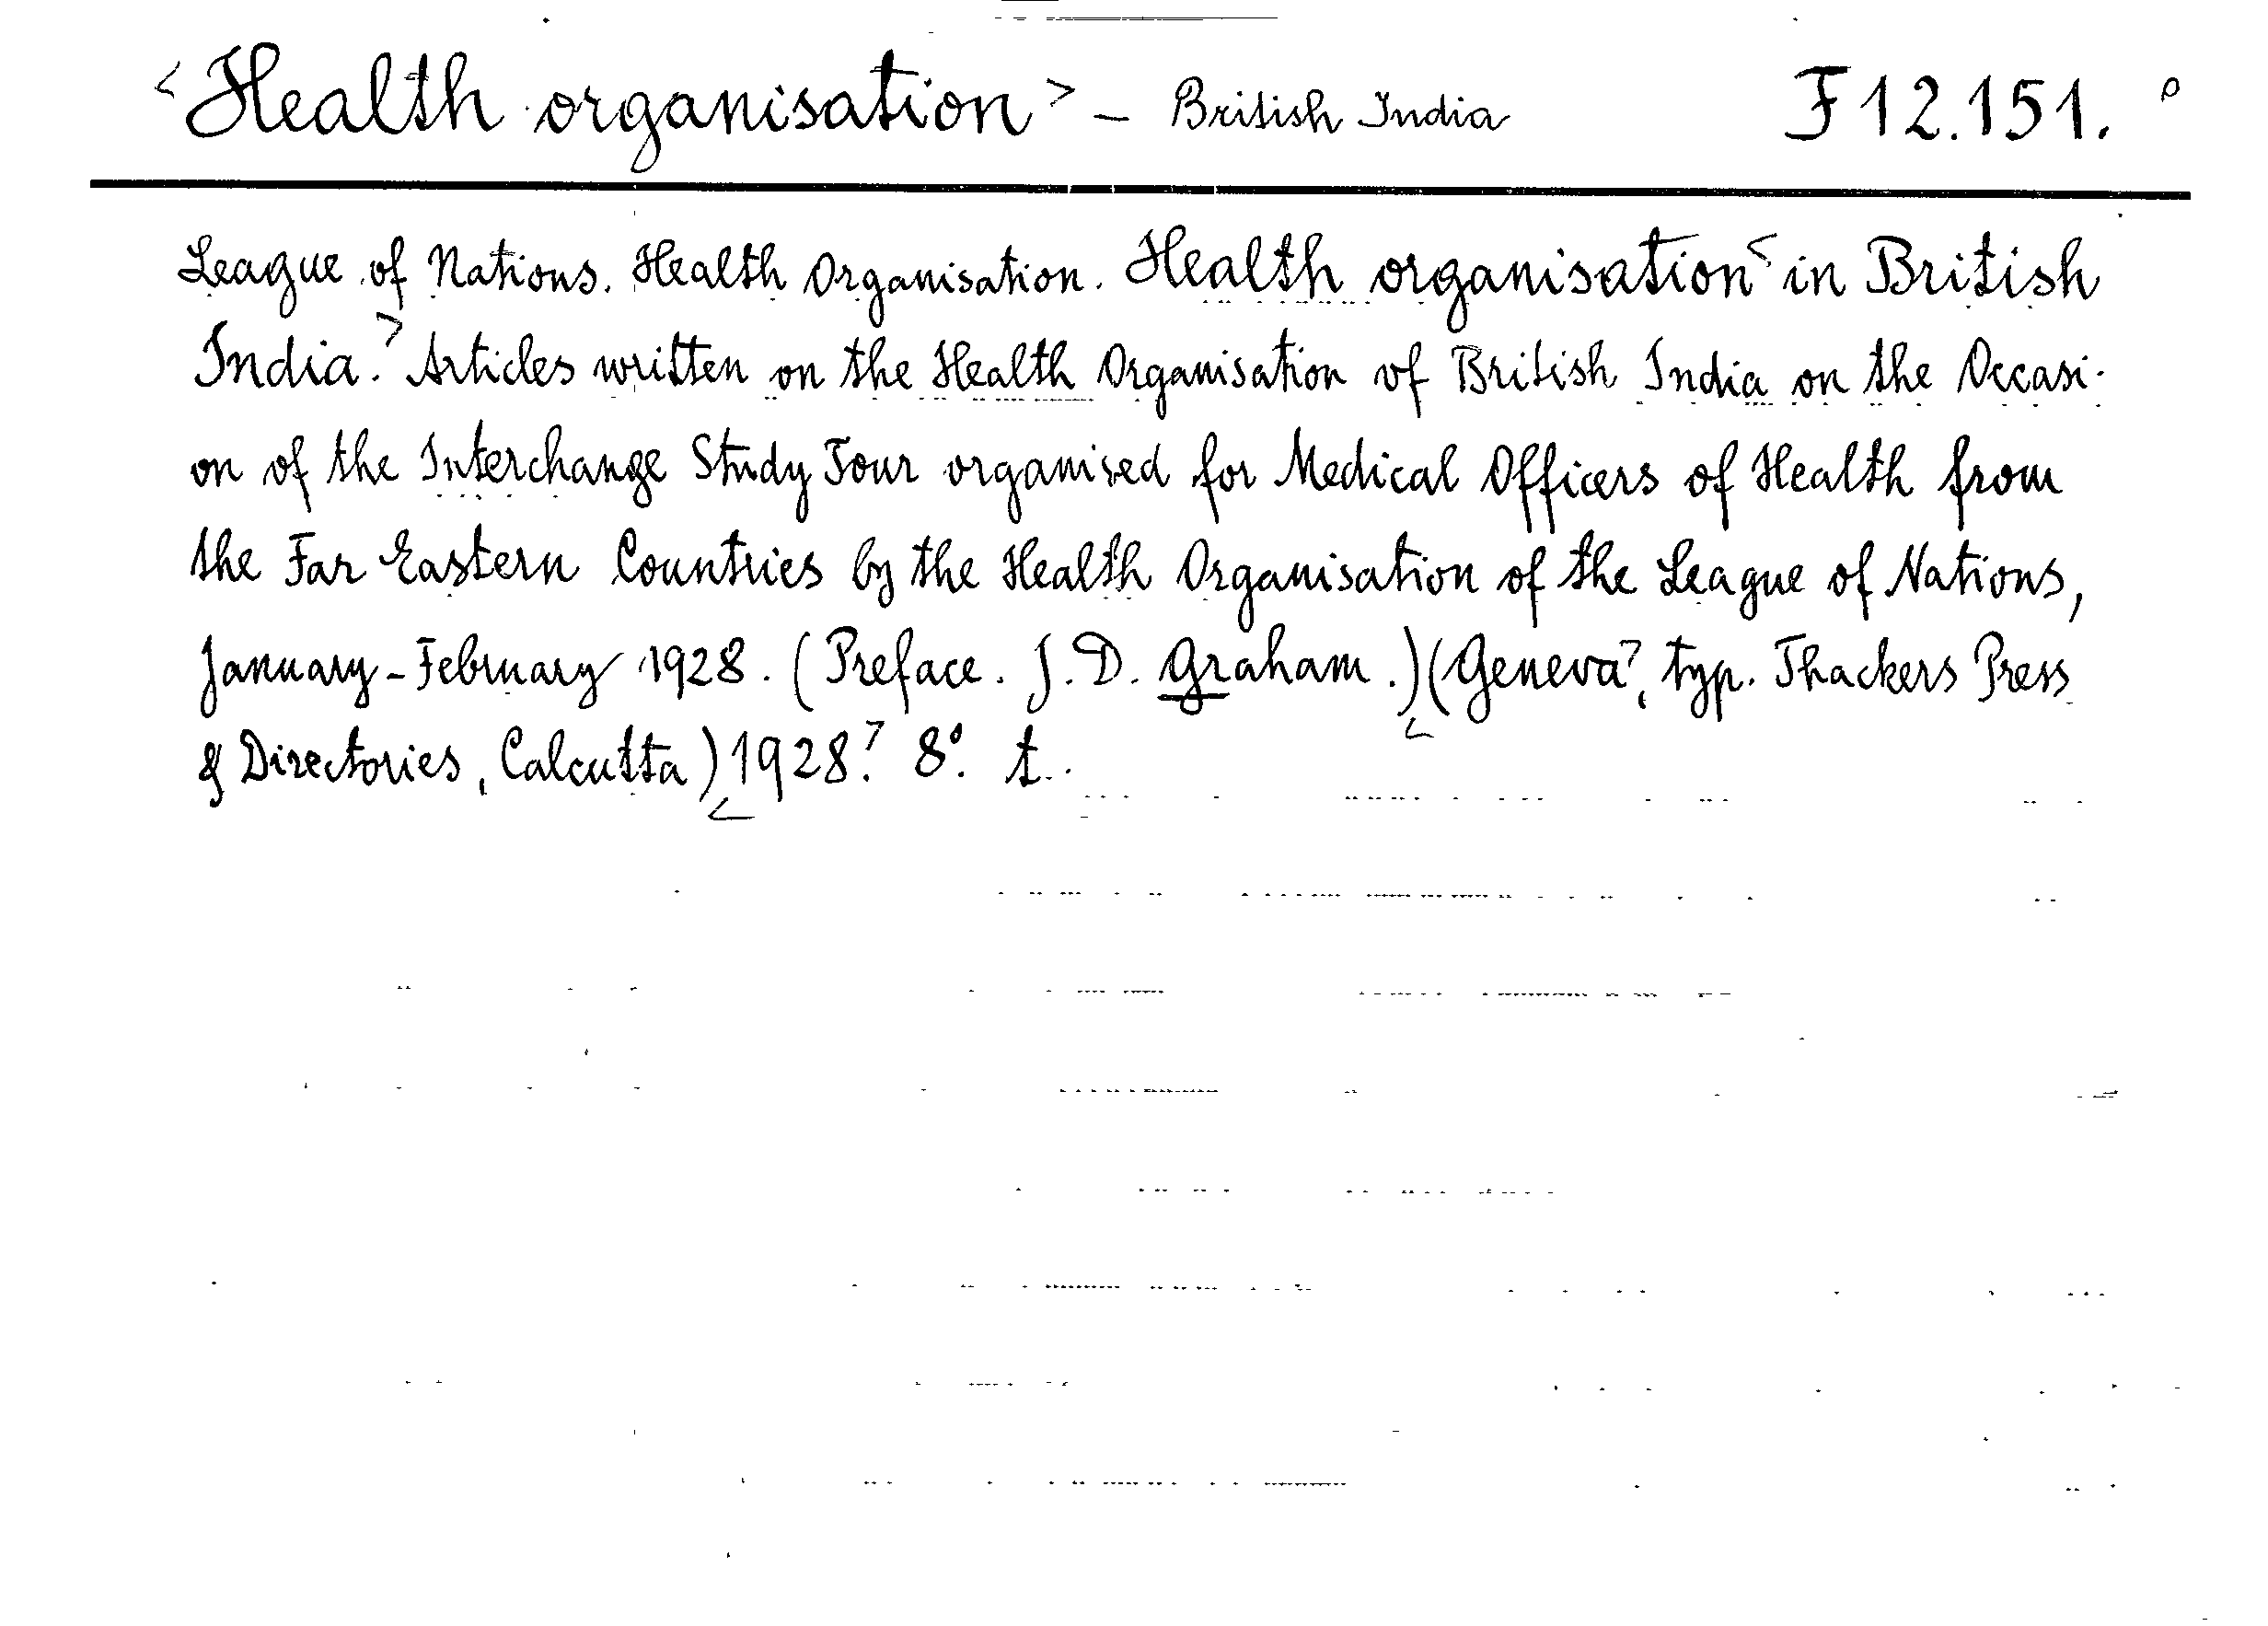 <Health organisation> – British India F 12.151. °
League of Nations. Health Organisation. Health organisation< in British
India.> Articles written on the Health Organisation of British India on the Occasi-
on of the Interchange Study Tour organised for Medical Officers of Health from
the Far Eastern Countries by the Health Organisation of the League of Nations,
January-February 1928. (Preface. J. D. Graham.) <(Geneva>, typ. Thackers Press
& Directories, Calcutta) <1928.> 8°. t.